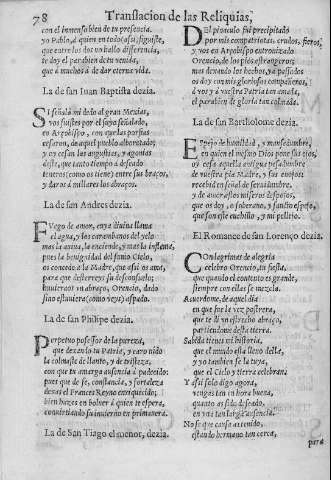 78 Translacion de las Reliquias,
con el inmenso bien de tu presencia.
yo Pablo, a quien en todo casi seguiste,
que entre los dos vn hallo differencia,
te doy el parabien de tu venida,
que à muchos à de dar eterna vida.
La de san Iuan Baptista dezia.
SI señalà mi dedo al gran Mexias,
vos fuistes por el suyo señalado,
en Arçobispo, con quellas porfias
cessaron, de aquel pueblo alborotado;
y oy cesan las angustias, y agonias
deste, que tanto tiempo à deseado
teneros (como os tiene) entre sus braços,
y daros à millares los abraços.
La de san Andres dezia.
FVego de amor, cuya diuina llama
el agua, y los carambanos del yelo
mas la auiua, la enciende, y mas la inflama,
pues la benignidad del sumo Cielo,
os concedio à la Madre, que assi os ama,
para que desterreys su desconsuelo;
hunieraos vn abraço, Orencio, dado
sino estuuiera (como veys) aspado.
La de san Philipe dezia.
PErpetuo possessor de la pureza,
que dexando tu Patria, y caro nido
la colmaste de llanto, y de tristeza,
con que tu amarga ausencia à padecido:
pues que de fè, constancia, y fortaleza
dexas el Frances Reyno enriquecido;
bien hazes en boluer à quien te espera,
conuirtiendo su inuierno en primauera.
La de San Tiago el menor, dezia.
DEl pinoculo fui precipitado
por mis compatriotas, crudos, fieros,
y vos en Arçobispo entronizado
Orencio, de los pios estrangeros;
mas dexando los hechos, ya passados
os doy con mis gloriosos compañeros,
à vos y à vuestra Patria tan amada,
el parabien de gloria tan colmada.
La de san Bartholome dezia.
ESpejo de humildad, y mansedumbre,
en quien el mesmo Dios pone sus ojos,
oy cesa aquella antigua pesadumbre
de vuestra pia Madre, y sus enojos:
recebid en señal de seruidumbre,
y de nuestros miseros despojos,
que os doy, ò soberano, y sancto espejo,
que son este cuchillo, y mi pellejo.
El Romance de san Lorenço dezia.
COn lagrimas de alegria
celebro Orencio, tu fiesta,
que quando el contento es grande,
siempre con ellas se mezcla.
Acuerdome, de aquel dia
en que fue la vez postrera,
que te di vn estrecho abraço,
partiendome desta tierra.
Sabida tienes mi historia,
que el mundo està lleno della,
y yo tambien se la tuya,
que el Cielo y tierra celebran:
Y assi solo digo agora,
vengas tan en hora buena,
quanto as sido deseado,
en vna tan larga ausencia.
No se que causa atenido,
estando hermano tan cerca,
para